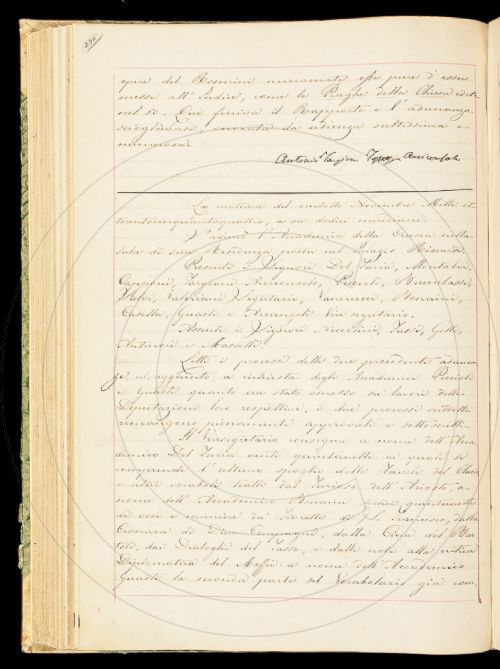 opere del Rosmini minacciate esse pure d'esser
messe all'Indice, come le Piaghe della Chiesa
nel 50. Qui finiva il Rapporto e l'adunanza
scioglievasi, onorata da udienza
numerosa.
Antonio
La mattina del Novembre Mille ot-
tocentocinquantaquattro, a ore dodici meridiane.
S'adunò l'Accademia della Crusca nella
sala di sua Residenza posta nel Palazzo Riccardi.
Presenti i Signori Del Furia, Montalvi,
Capponi, Targioni Arciconsolo, Puccioti, Bruciotassi,
Segretario, Vannucci, Bonaini,
Casella, Guasti e Arcangeli Vice segretario.
Assenti i Signori Niccolini, Tassi, Gelli,
e Masselli.
Letti i processi delle due precedenti adunan-
ze, ed aggiunto, a richiesta degli Accademici
e Guasti quanto era stato omesso su' lavori delle
Deputazioni loro respettive, i due processi suddetti
rimangono pienamente approvati e sottoscritti.
Il Vicesegretario consegna a nome dell'Acca-
demico Del Furia venti quinternetti ne' quali si
comprende l'ultimo spoglio delle Favole del
e altri vocaboli tratti dal Furioso dell'Ariosto; a
nome dell'Accademico Bonaini sedici quinternetti
di voci e maniere da' Fioretti di S. Francesco, dalla
Cronaca di Dino Compagni, dalla del Bar-
toli, dai Dialoghi del Tasso, e dalle note alla
Diplomatica del Maffei: a nome dell'Accademico
Guasti la seconda parte del Vocabolario già com-